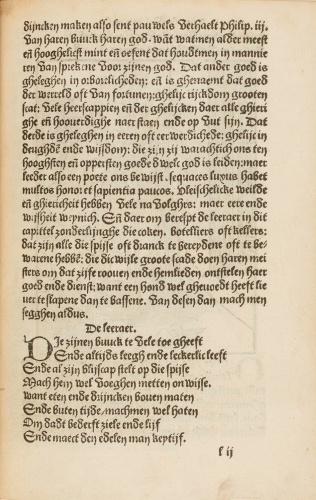 dijncken maken also sent pauwels verhaelt Philip. iij.
Van haren buuck haren god. wāt watmen alder meest
eñ hooghelicst mint eñ oefent dat houdtmen in mannie
ren van sprekene voor zijnen god. Dat ander goed is
gheleghen in orborlicheden: eñ is ghenaemt dat goed
der wereld oft van fortunen: ghelijc rijckdom grooten
scat: vele heerscappien eñ der ghelijcken daer alle ghieri
ghe eñ hoouerdighe naer staen ende op vut sijn. Dat
derde is gheleghen in eeren oft eerwerdichede: ghelijc in
deughdē ende wijsdom: die zijn zij warachtich ons ten
hooghsten eñ oppersten goede ð welc god is leiden: maer
leder also een poete ons bewijst. sequaces luxus habet
multos honor et sapientia paucos. Vleischelicke weilde
eñ ghiericheit hebben vele navolghrs: maer eere ende
wijsheit weynich. Eñ daer om berespt de leeraer in dit
capittel zonderlijnghe die coken. botelliers oft kellers:
dat zijn alle die spijse oft dranck te bereydene oft te be-
warene hebbē: die dicwijle groote scade doen haren mei
sters om dat zijse rooven ende hemlieden ontstelen haer
goed ende dienst: want een hond wel ghevoedt heeft lie
uer te slapene dan te bassene. Van desen dan mach men
segghen aldus.
De leeraer.
Die zijnen buuck te vele toe gheeft
Ende altijds leegh ende leckerlic leeft
Ende al zijn blijscap stelt op die spijse
Mach hem wel voeghen metten onwise.
want eten ende drijncken boven maten
Ende buten tijde/machmen wel haten
Om dadt bederft ziele ende lijf
Ende maect den edelen man keytijf.
l ij